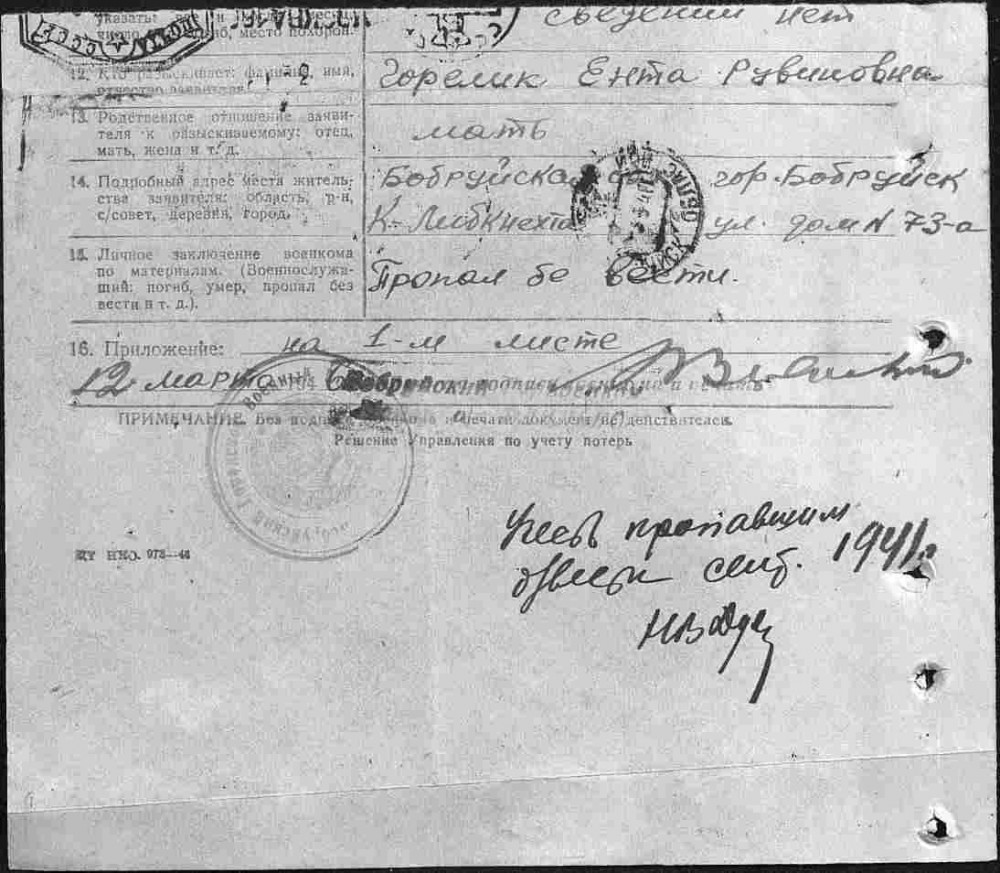 ПОЧТА СССР
сведений нет
число, место похорон.
12. Кто разыскивает: фамилия, имя, отчество заявителя.
Горелик Ента Рувиновна
13. Родственное отношение заяви-
теля к разыскиваемому: отец,
мать, жена и т. д.
мать
14. Подробный адрес места житель-
ства заявителя: область, р-н,
с/совет, деревня, город.
Бобруйская гор. Бобруйск
К-Либкнехта ул. дом N 73-а
15. Личное заключение военкома
по материалам. (Военнослужа-
щий: погиб, умер, пропал без
вести и т. д.).
Пропал бе вести.
16. Приложение: на 1-м листе
12 марта
ПРИМЕЧАНИЕ. Без печати документ не действителен.
Решение Управления по учету потерь
пропавшим
сент. 1941г.
НКО. 973—46